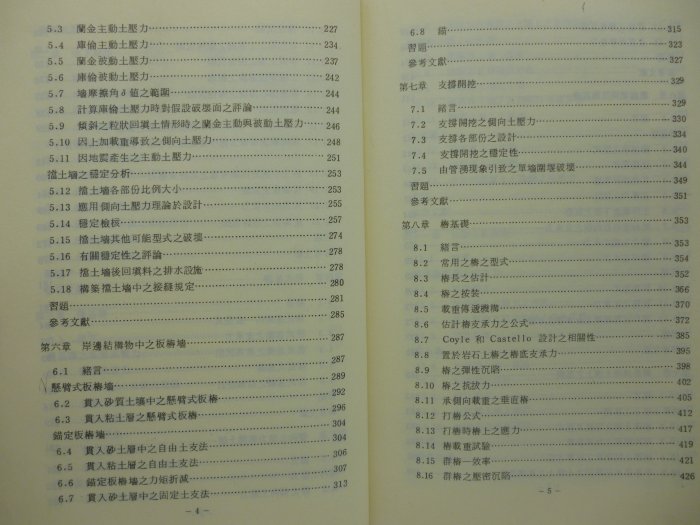 5.3 蘭金主動土壓力 227
5.4 庫倫主動土壓力 234
5.5 蘭金被動土壓力 237
5.6 庫倫被動土壓力 242
5.7 墻摩擦角δ值之範圍 244
5.8 計算庫倫土壓力時對假設破壞面之評論 244
5.9 傾斜之粒狀回填土情形時之蘭金主動與被動土壓力 246
5.10 因上加載重導致之側向土壓力 248
5.11 因地震產生之主動土壓力 251
擋土墻之穩定分析 253
5.12 擋土墻各部份比例大小 253
5.13 應用側向土壓力理論於設計 255
5.14 穩定檢核 257
5.15 擋土墻其他可能型式之破壞 274
5.16 有關穩定性之評論 278
5.17 擋土墻後回填料之排水設施 278
5.18 構築擋土墻中之接縫規定 280
習題 281
參考文獻 285
第六章 岸邊結構物中之板樁墻 287
6.1 緒言 287
懸臂式板樁墻 289
6.2 貫入砂質土壤中之懸臂式板樁 292
6.3 貫入粘土層之懸臂式板樁 296
錨定板樁墻 304
6.4 貫入砂土層中之自由土支法 304
6.5 貫入粘土層之自由土支法 306
6.6 錨定板樁墻之力矩折減 307
6.7 貫入砂土層中之固定土支法 313
－4－
6.8 錨 315
習題 323
參考文獻 327
第七章 支撐開挖 329
7.1 緒言 329
7.2 支撐開挖之側向土壓力 330
7.3 支撐各部份之設計 334
7.4 支撐開挖之穩定性 340
7.5 由管湧現象引致之單墻圍堰破壞 344
習題 349
參考文獻 351
第八章 樁基礎 353
8.1 緒言 353
8.2 常用之樁之型式 354
8.3 樁長之估計 362
8.4 樁之按裝 366
8.5 載重傳遞機構 370
8.6 估計樁支承力之公式 372
8.7 Coyle 和 Castello 設計之相關性 385
8.8 置於岩石上樁之樁底支承力 395
8.9 樁之彈性沉陷 398
8.10 樁之抗拔力 402
8.11 承側向載重之垂直樁 405
8.12 打樁公式 415
8.13 打樁時樁上之應力 417
8.14 樁載重試驗 419
8.15 群樁—效率 421
8.16 群樁之壓密沉陷 426
－5－